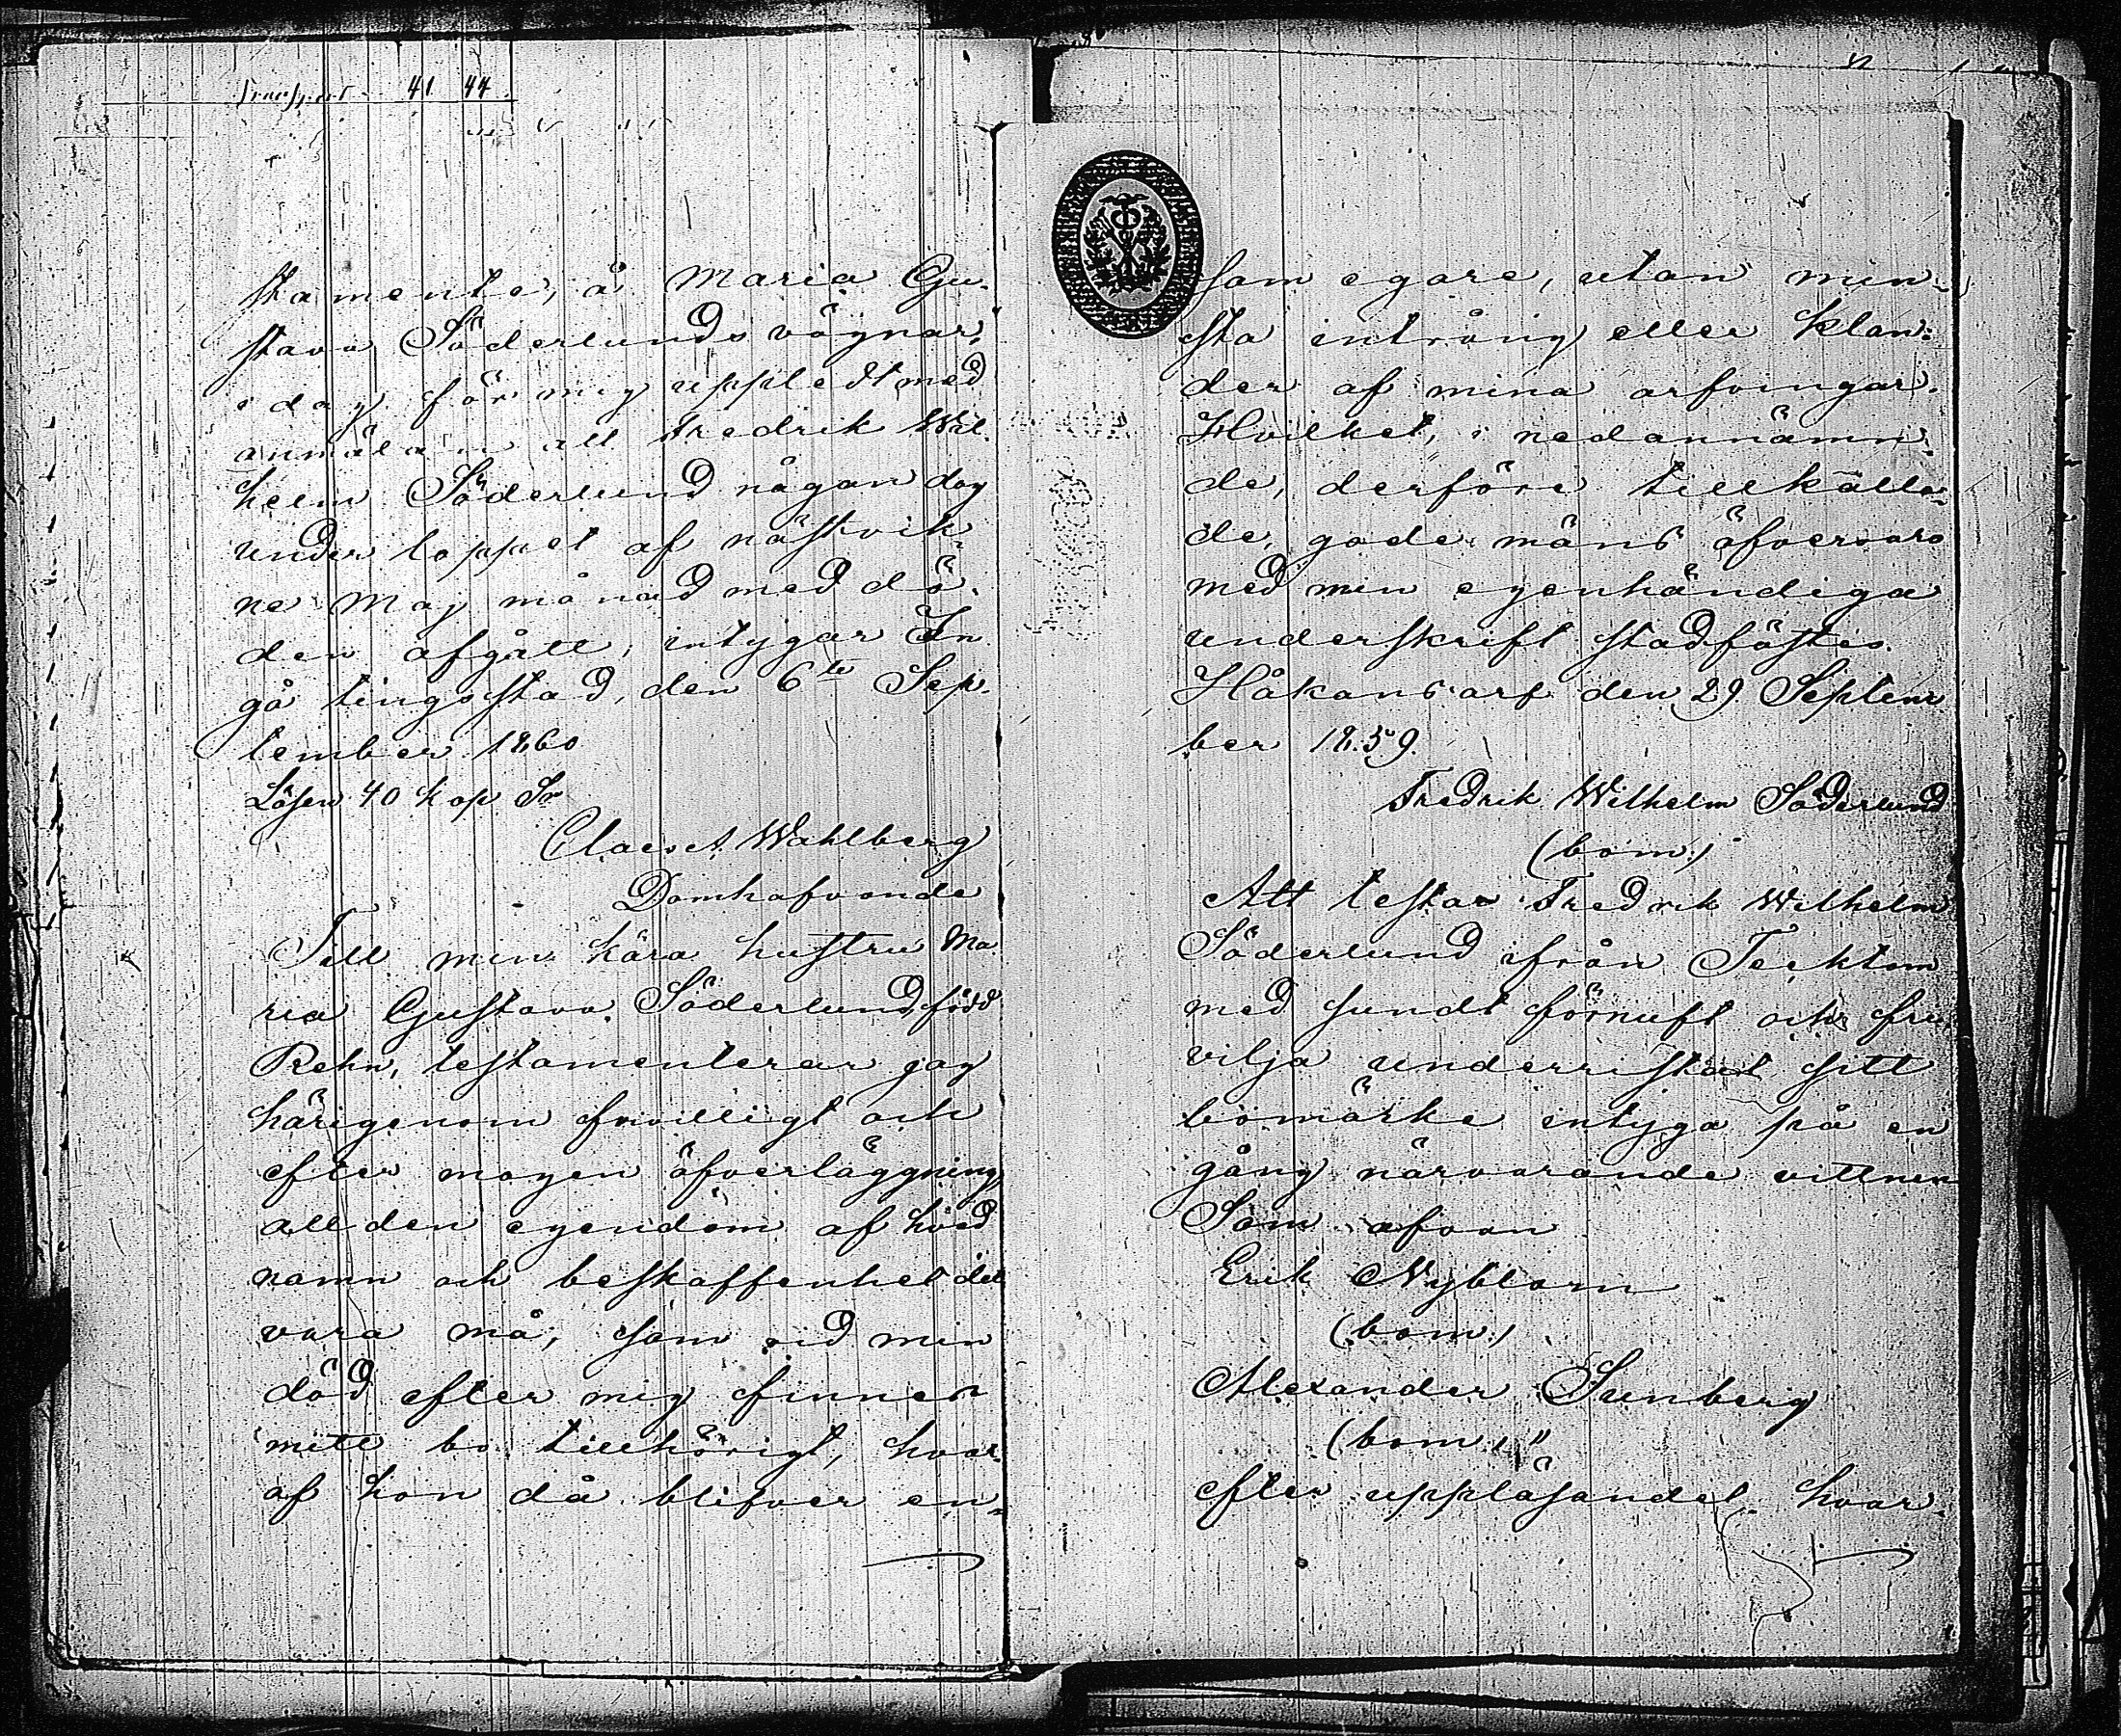 Transport 41 44
stamente, å Maria Gu-
stava Söderlunds vägnar,
i dag för mig uppledt med
anmälan att Fredrik Wil-
helm Söderlund någon dag
under loppet af nästvik-
ne Maj månad med dö-
den afgått, intygar In
gå tingsstad, den 6te Sep-
tember 1860
Lösen 40 kop Sr
Claes A Wahlberg
Domhafvande
Till min kära hustru Ma
ria Gustava Söderlund, född
Rehn, testamenterar jag
härigenom frivilligt och
efter mogen öfverläggning
all den egendom af hvad
namn och beskaffenhet det
vara må, som vid min
död efter mig finnes
mitt bo tillhörigt, hvar-
af hon då blifver en-
som egare, utan min-
sta intrång eller klan-
der af mina arfvingar.
Hvilket, i nedannämn-
de, derföre tillkalla-
de, gode mäns öfvervaro
med min egenhändiga
underskrift stadfästes.
Håkansarf den 29 Septem
ber 1859.
Fredrik Wilhelm Söderlund
(bom.)
Att testar Fredrik Wilhelm
Söderlund ifrån Tecktom
med sundt förnuft och fri
vilja underristat sitt
bomärke intyga på en
gång närvarande vittnen
Som ofvan
Erik Nyblom
(bom.)
Alexander Sunberg
(bom.)"
efter uppläsandet hvar-